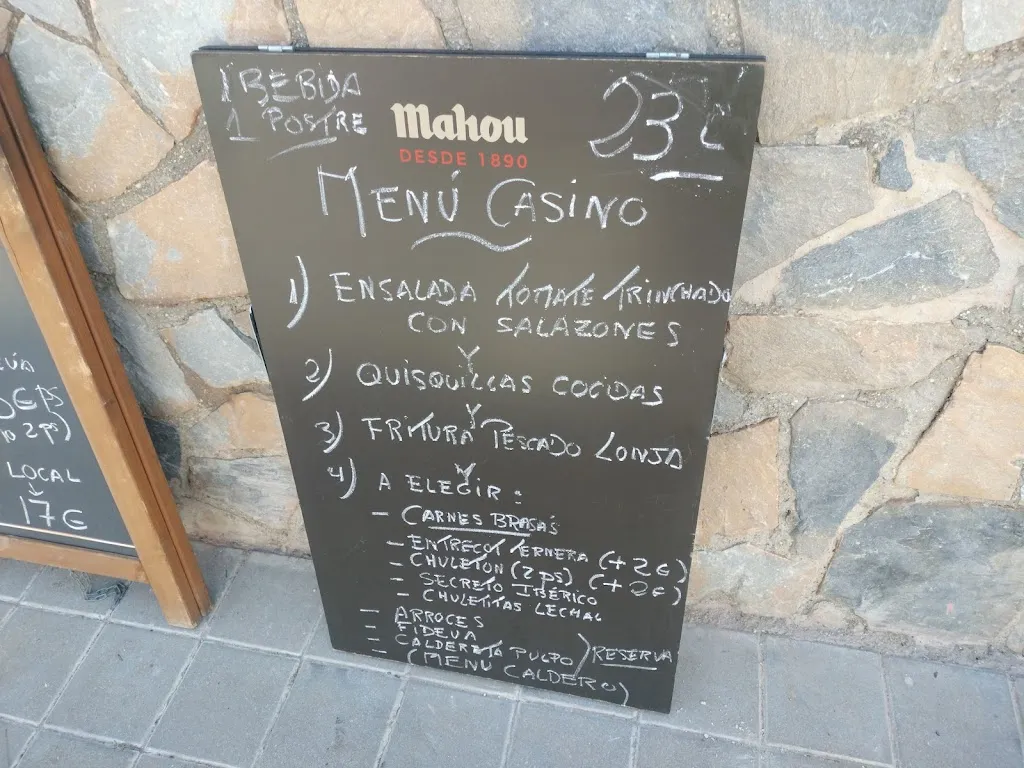 1 BEBIDA
1 POSTRE
mahou
DESDE 1890
23 €
MENÚ CASINO
1) ENSALADA TOMATE TRINCHADO
CON SALAZONES
Y
2) QUISQUILLAS COCIDAS
Y
3) FRITURA PESCADO LONJA
Y
4) A ELEGIR:
- CARNES BRASAS
- ENTRECOT TERNERA (+2€)
- CHULETON (2 ps) (+2€)
- SECRETO IBÉRICO
- CHULETITAS LECHAL
- ARROCES
- FIDEUA
- CALDERETA PULPO) RESERVA
- (MENU CALDERO)
2 ps)
LOCAL
17€